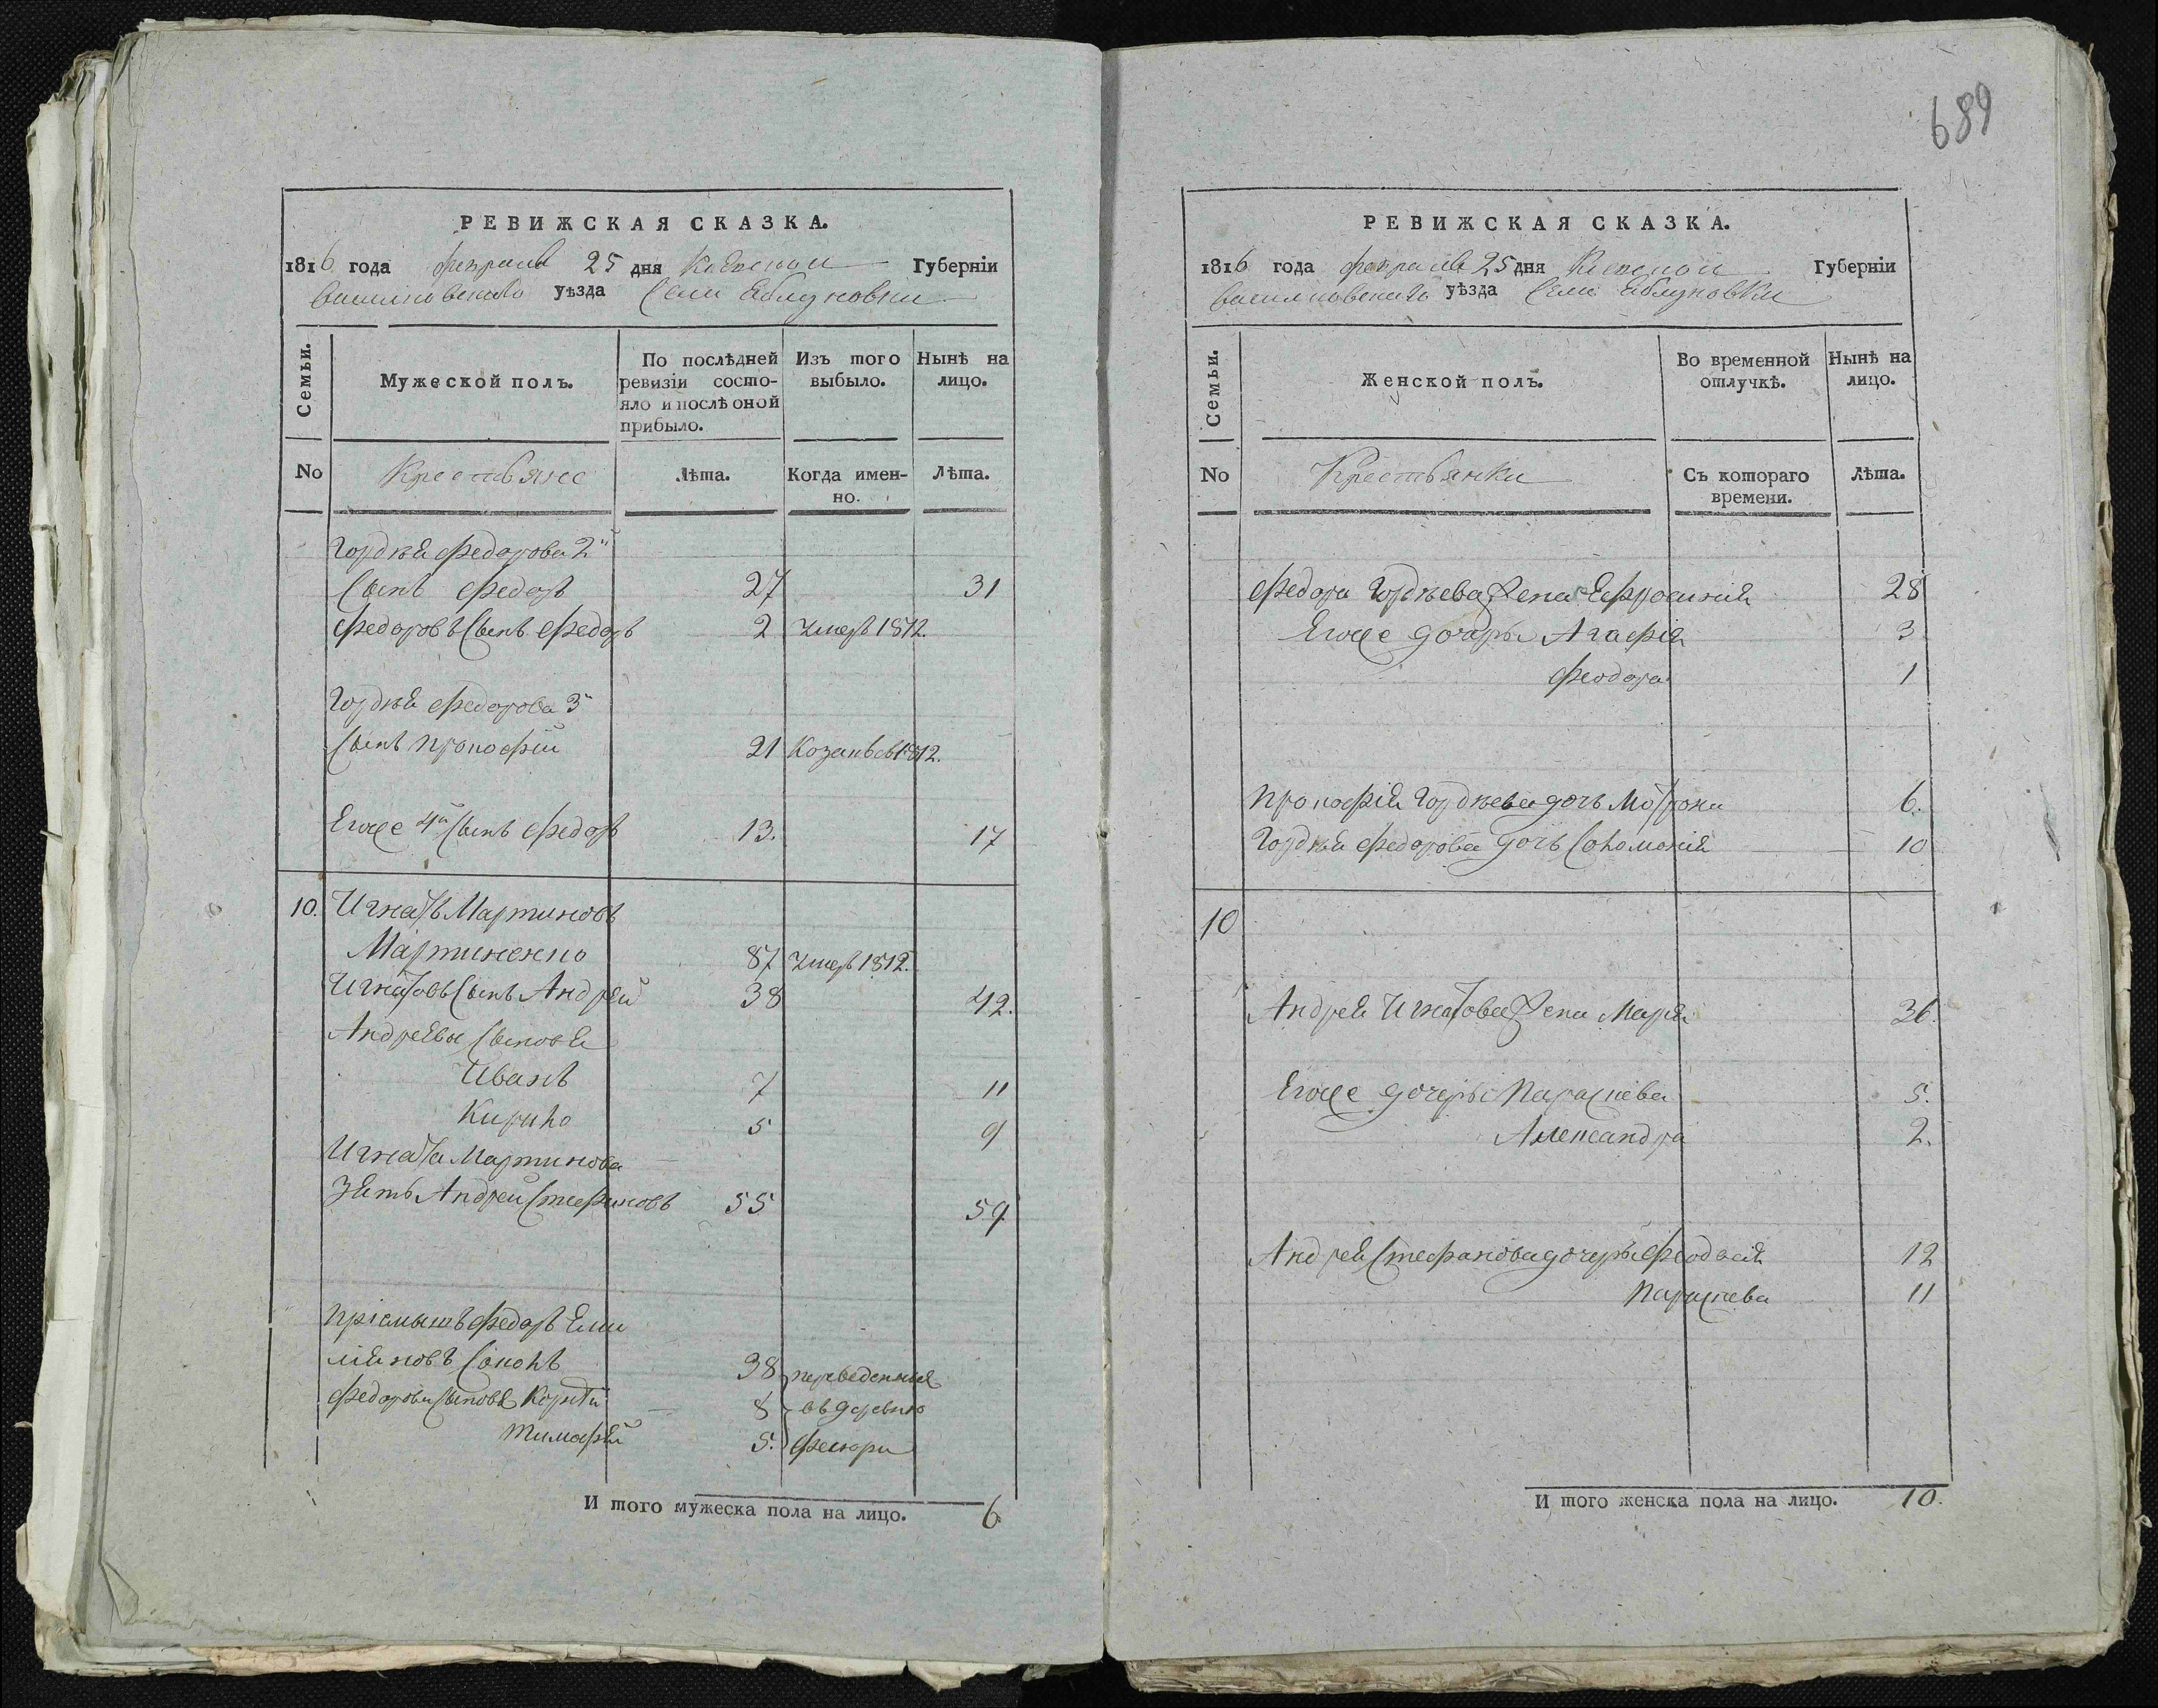 689
РЕВИЖСКАЯ СКАЗКА.
1816 года февраля 25 дня Кіевской Губерніи
Василковскаго уѣзда Села Яблуновки
Семьи.
Мужеской полъ.
По послѣдней ревизіи состо-
яло и послѣ оной
прибыло.
Изъ того
выбыло.
Нынѣ на
лицо.
No
Крестьяне
Лѣта.
Когда имен-
но.
Лѣта.
Гордѣя Федорова 2й
Сынъ Федоръ 27 31
Федоровъ Сынъ Федоръ 2 Умеръ 1812.
Гордѣя Федорова 3й
Сынъ Прокофій 21 1812.
Егоже 4й Сынъ Федоръ 13. 17
10. Игнатъ Мартиновъ
Мартиненко 87 Умеръ 1812.
Игнатовъ Сынъ Андрей 38 42.
Андреевы Сыновя
Иванъ 7 11
Кирило 5 9
Игната Мартинова
Зять Андрей Стефановъ 55 59
Пріемышъ Федоръ Еми
ліяновъ Соколъ 38 переведенныя
Федоровы Сыновя Корнѣй 8 въ деревню
Тимофѣй 5. Фесюри
И того мужеска пола на лицо. 6.
РЕВИЖСКАЯ СКАЗКА.
1816 года февраля 25 дня Кіевской Губерніи
Василковскаго уѣзда Села Яблуновки
Семьи.
Женской полъ.
Во временной
отлучкѣ.
Нынѣ на
лицо.
No
Крестьянки
Съ котораго
времени.
Лѣта.
Федора Гордѣева Жена Ефросинія 28
Егоже дочеры Агафія 3
Феодора 1
Прокофія Гордѣева дочь Мотрона 6.
Гордѣя Федорова дочь Соломонія 10
10
Андрея Игнатова Жена Марія 36.
Егоже дочеры Параскева 5.
Александра 2.
Андрея Стефанова дочеры Феодосія 12
Параскева 11
И того женска пола на лицо. 10.